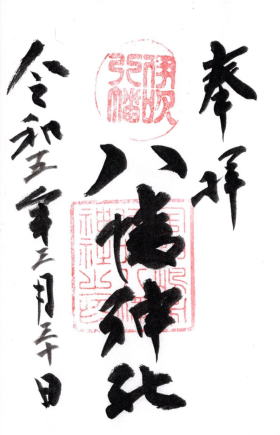 奉拝
八幡神社
令和五年三月三十日
伊吹
八幡